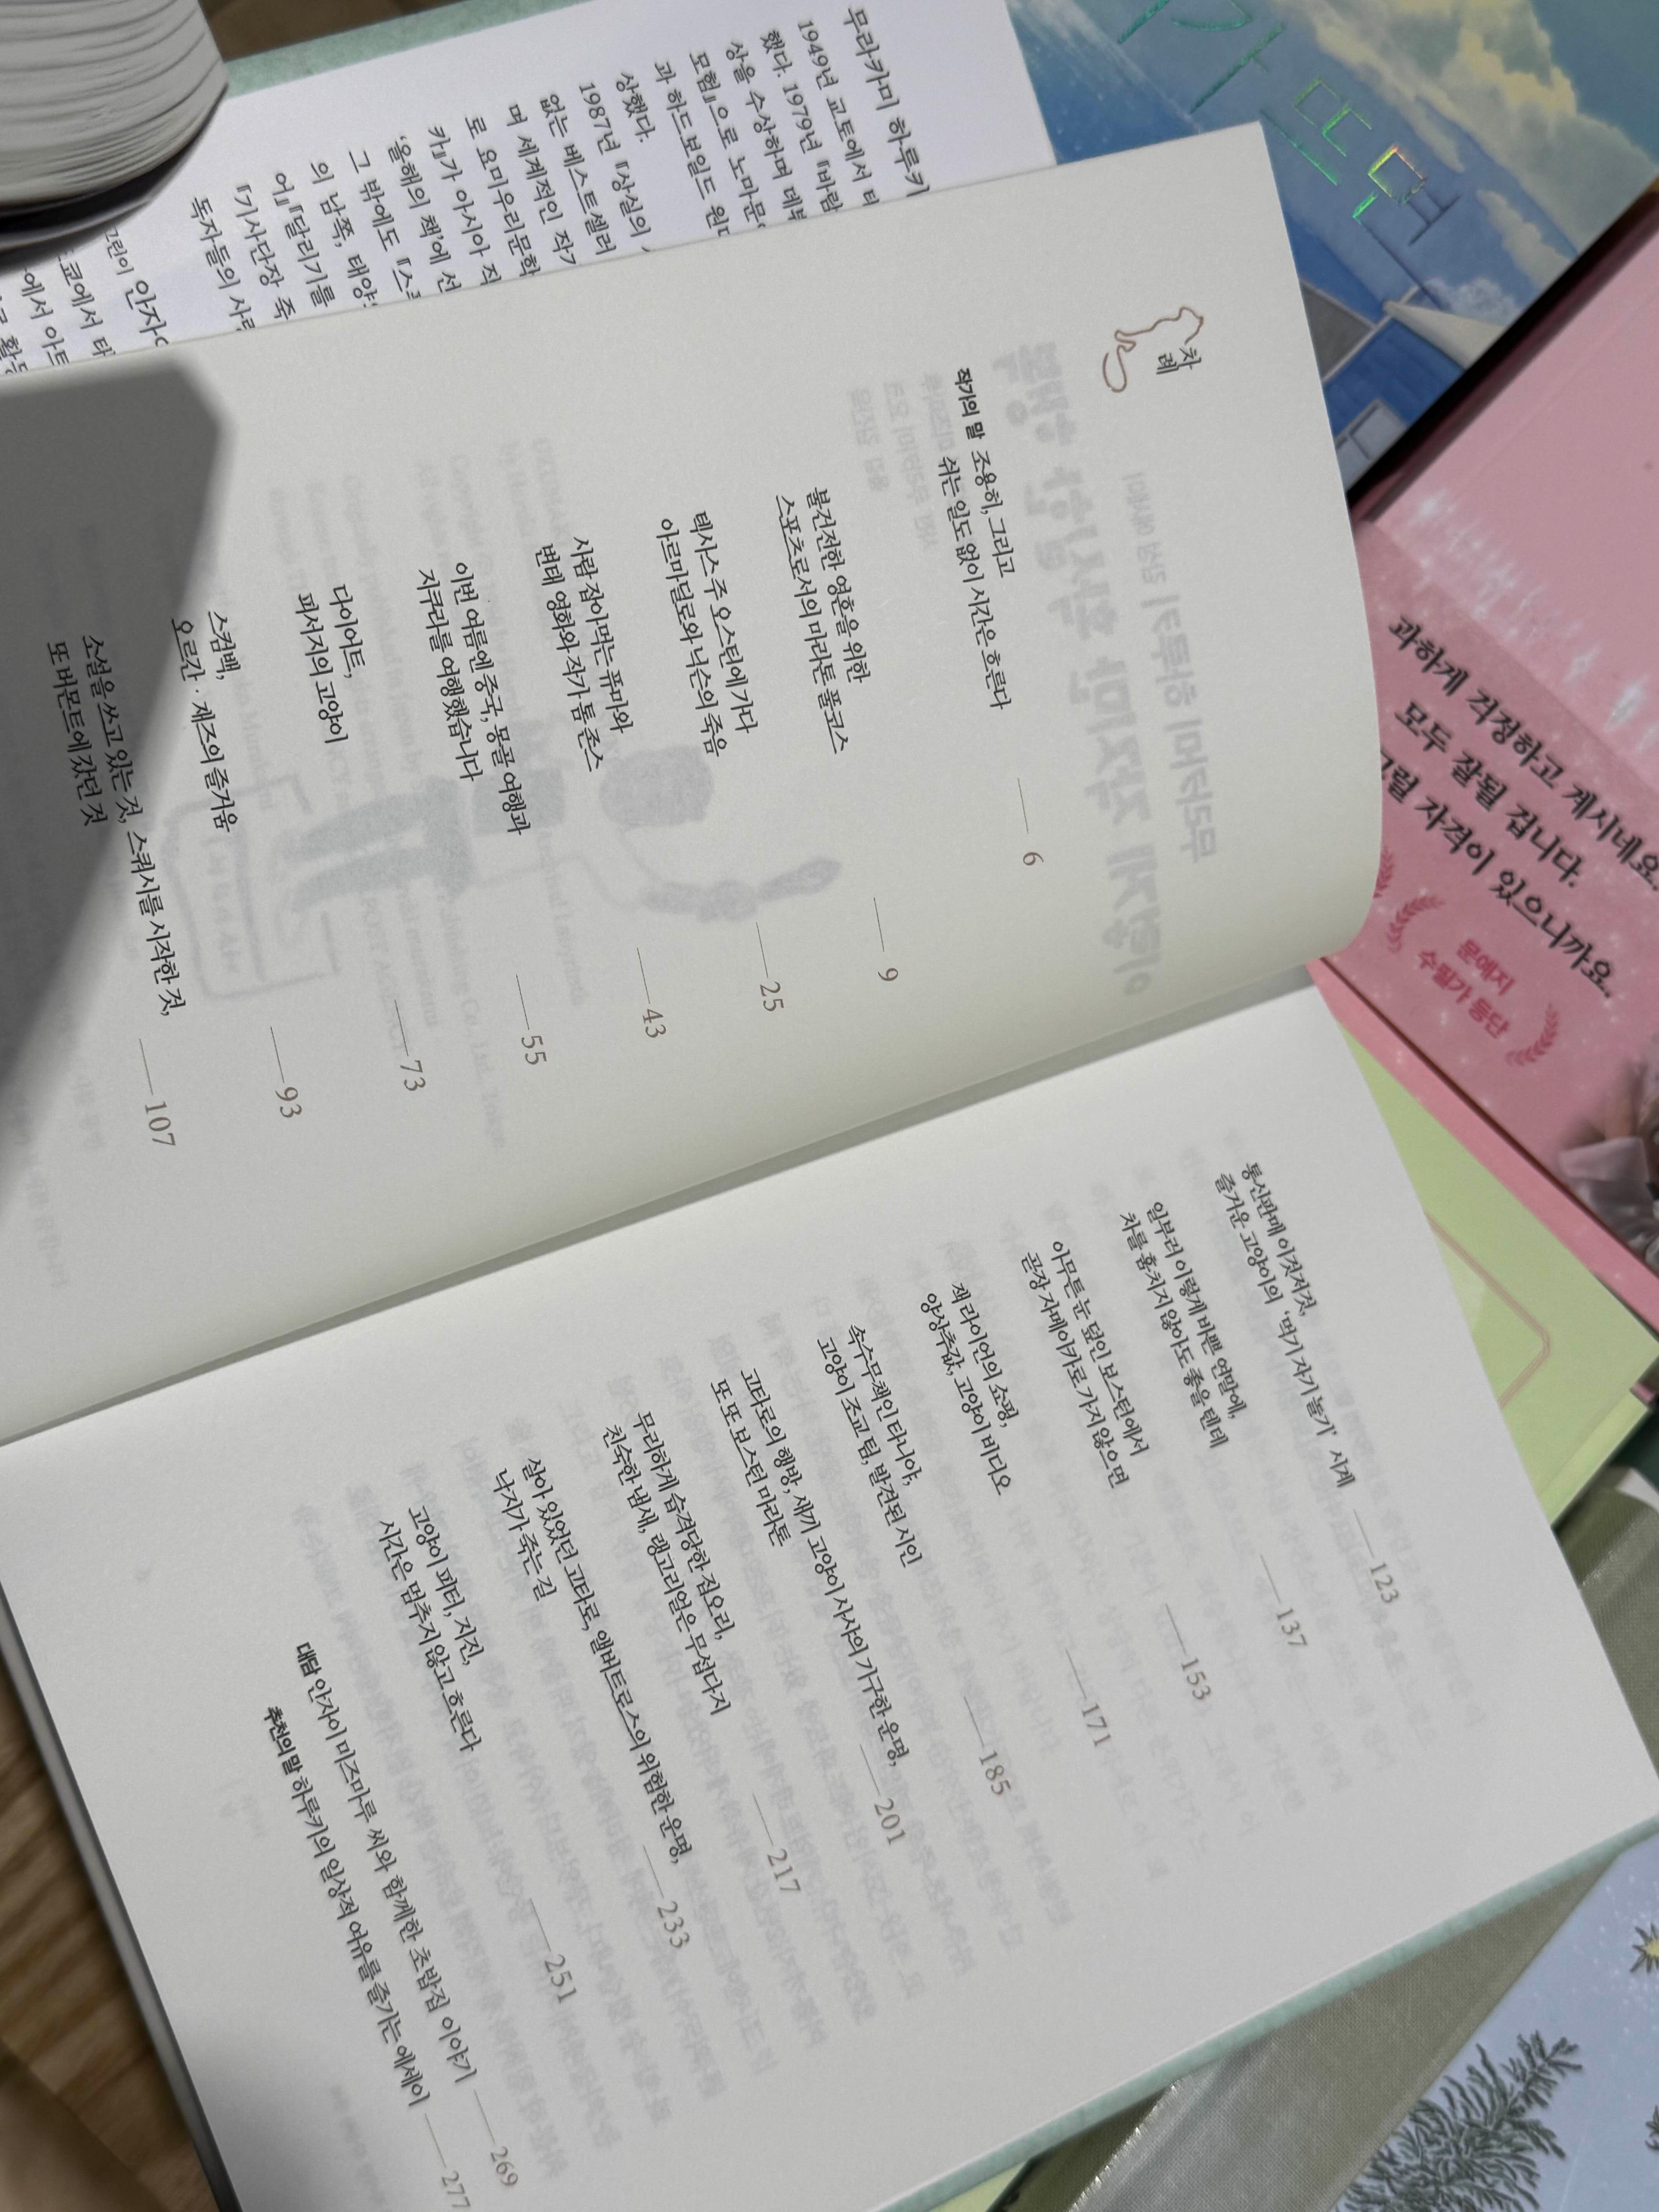 차례
작가의 말 조용히, 그리고
쉬는 일도 없이 시간은 흐른다 — 6
불건전한 영혼을 위한
스포츠로서의 마라톤 풀코스 — 9
텍사스 주 오스틴에 가다
아르마딜로와 닉슨의 죽음 — 25
사람 잡아먹는 퓨마와
변태 영화와 작가 톰 존스 — 43
이번 여름엔 중국, 몽골 여행과
지쿠라를 여행했습니다 — 55
다이어트,
피서지의 고양이 — 73
스컴백,
오르간 · 재즈의 즐거움 — 93
소설을 쓰고 있는 것, 스쿼시를 시작한 것,
또 버몬트에 갔던 것 — 107
통신판매 이것저것,
즐거운 고양이의 ‘먹기 자기 놀기’ 시계 — 123
일부러 이렇게 바쁜 연말에,
차를 훔치지 않아도 좋을 텐데 — 137
아무튼 눈 덮인 보스턴에서
곧장 자메이카로 가지 않으면 — 153
잭 라이언의 쇼핑,
양상추 값, 고양이 비디오 — 171
속수무책인 타니야,
고양이 조교 팀, 발견된 시인 — 185
고타로의 행방, 새끼 고양이 사샤의 기구한 운명,
또 또 보스턴 마라톤 — 201
무리하게 습격당한 집오리,
친숙한 냄새, 랭고리얼은 무섭다지 — 217
살아 있었던 고타로, 앨버트로스의 위험한 운명,
낙지가 죽는 길 — 233
고양이 피터, 지진,
시간은 멈추지 않고 흐른다 — 251
대담 안자이 미즈마루 씨와 함께한 초밥집 이야기 — 269
추천의 말 하루키의 일상적 여유를 즐기는 에세이 — 277
무라카미 하루키
1949년 교토에서 태
했다. 1979년 『바람
상을 수상하며 데뷔
모험』으로 노마문
과 하드보일드 원더
상했다.
1987년 『상실의
없는 베스트셀러
며 세계적인 작가
로 요미우리문학
카』가 아시아 작
‘올해의 책’에 선
그 밖에도 『스
의 남쪽, 태양
어』 『달리기를
『기사단장 죽
독자들의 사랑
그린이 안자이
도쿄에서 태
에서 아트
가 뜨면
과하게 걱정하고 계시네요.
모두 잘될 겁니다.
그럴 자격이 있으니까요.
문예지
수필가 등단